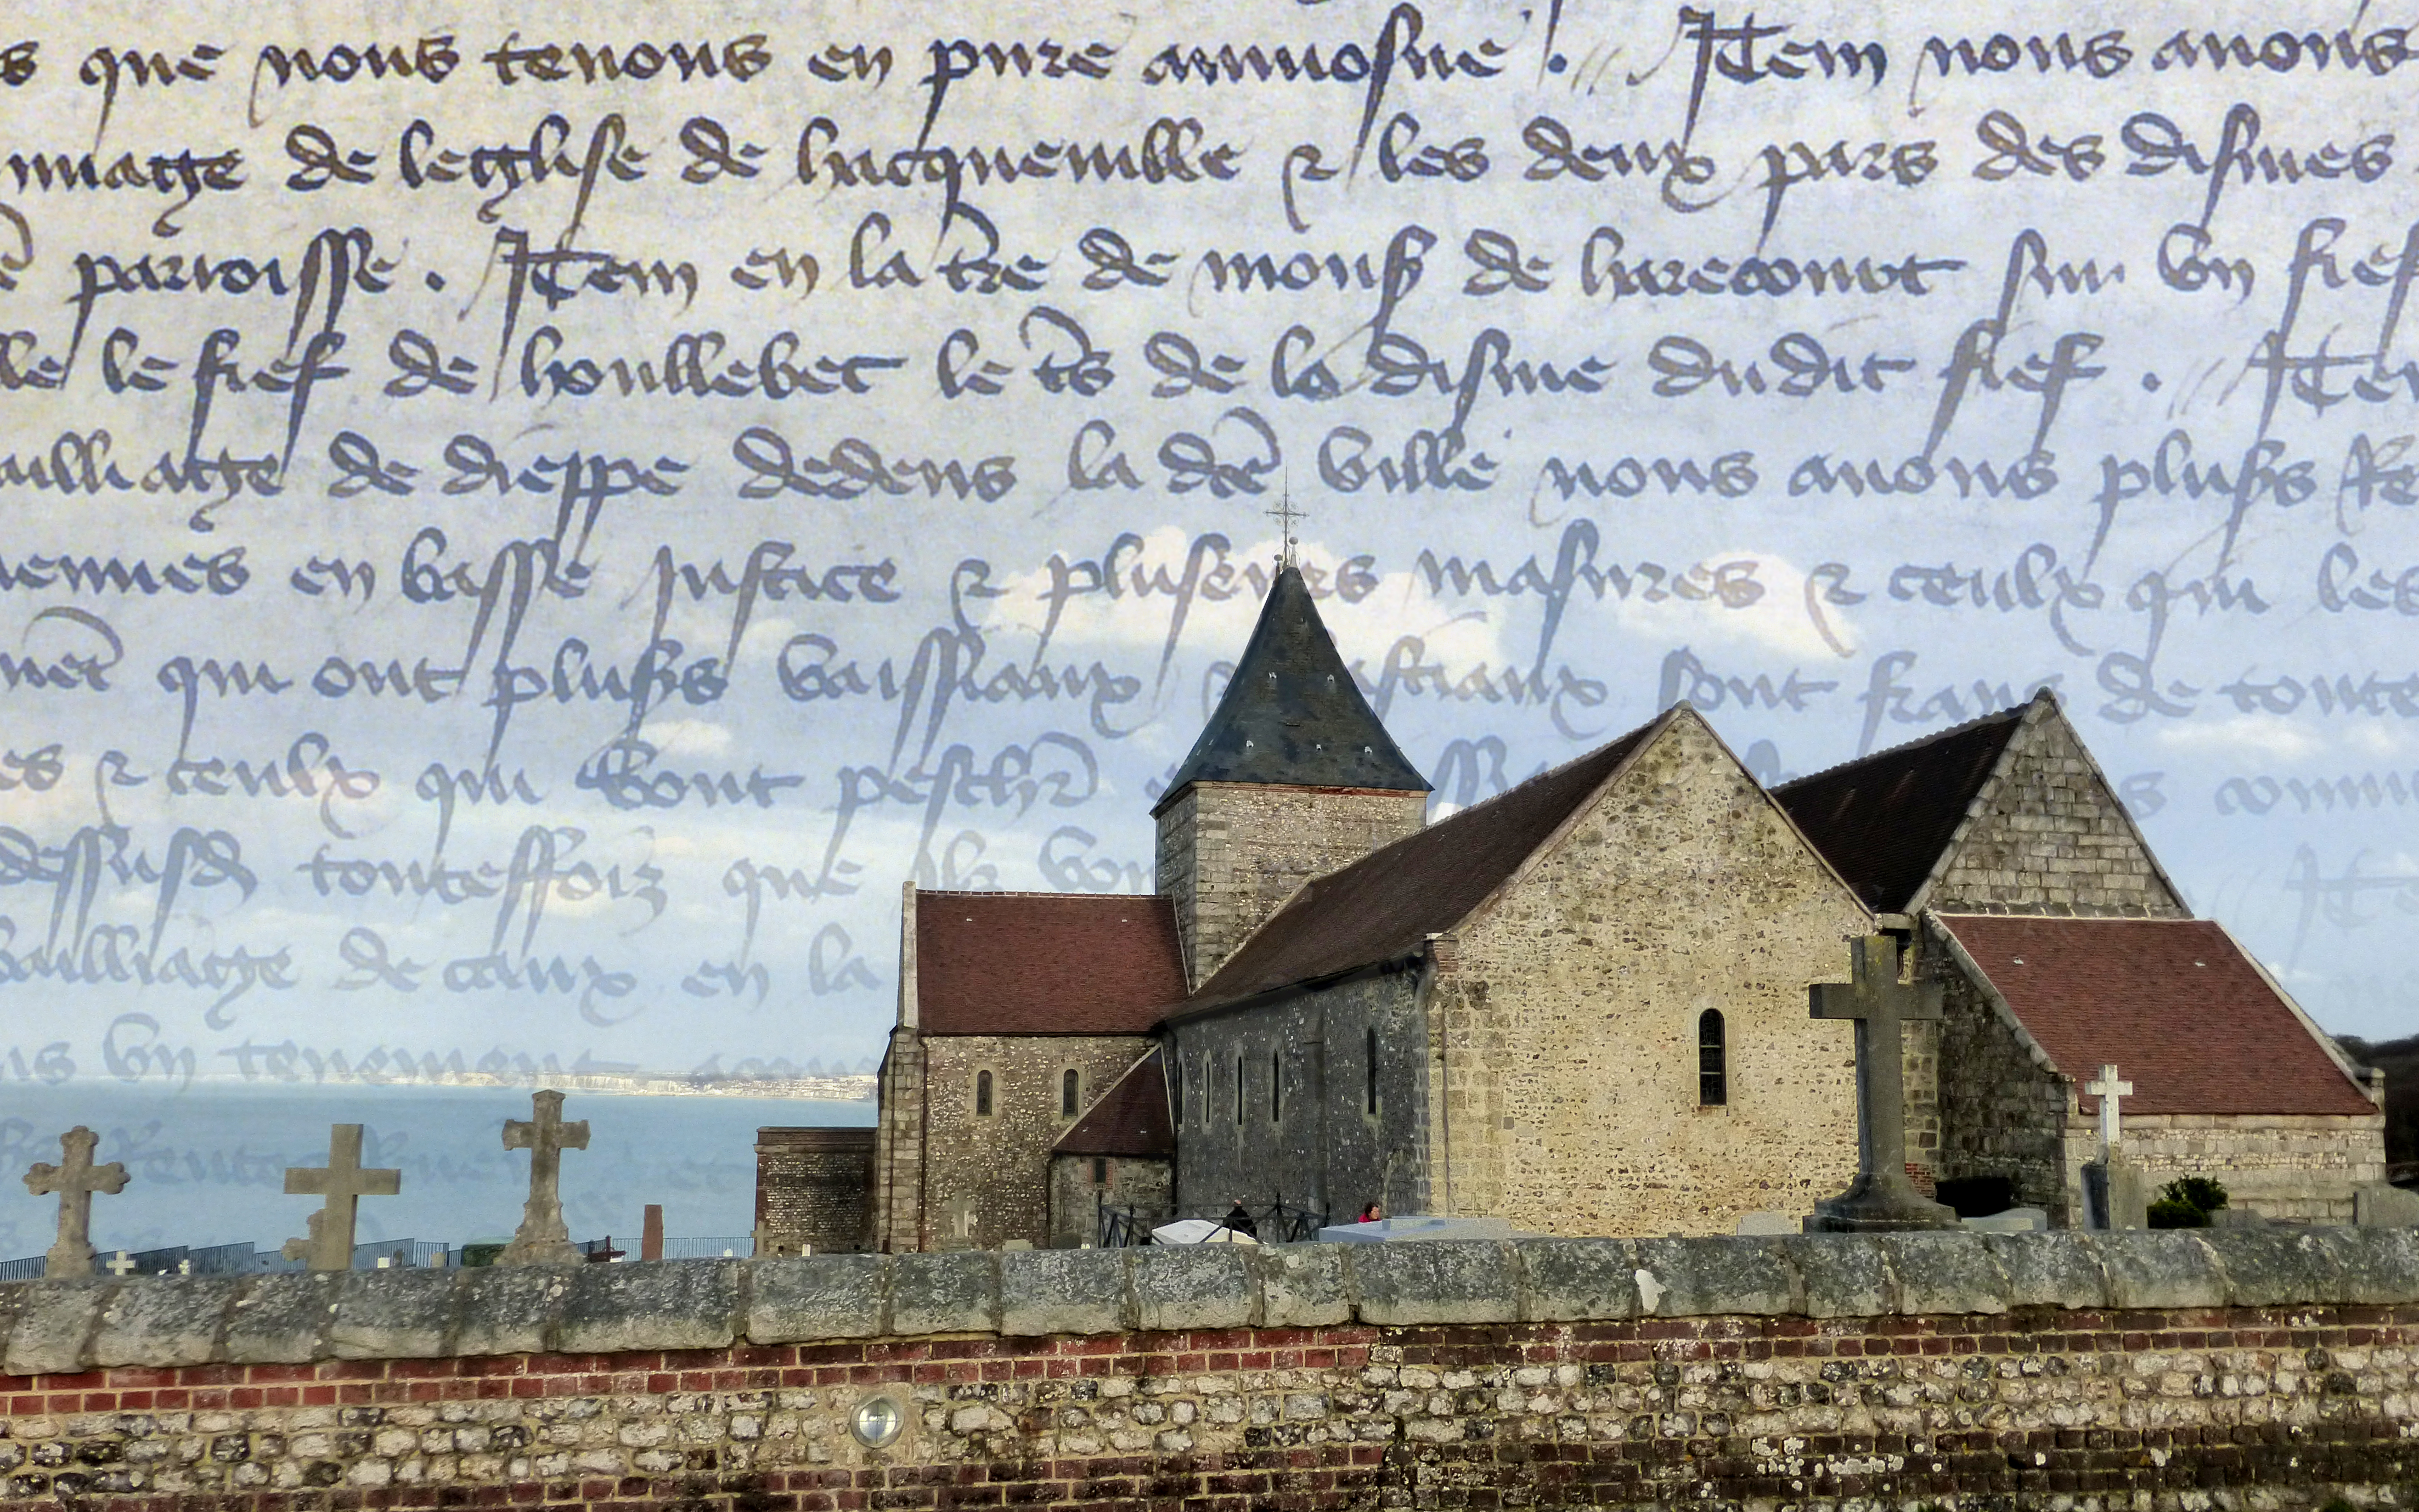 s que nous tenons en pure aumosne . Item nous auons
nnage de leglise de hacqueuille & les deux pars des dismes
parroisse . Item en la tre de monsr de harecourt sur vn fief
lle le fief de houllebec le ts de la disme dudit fief . Item
ailliage de dieppe dedens la dce ville nous auons plusrs Re
iennes en basse Justice & pluseurs masures & ceulx qui les
nent qui ont plusrs vaissiaux sont frans de toute
es & ceulx qui vont peschr
dessusd toutesfoiz que ilz von
bailliage de caux en la
ns vn tenement